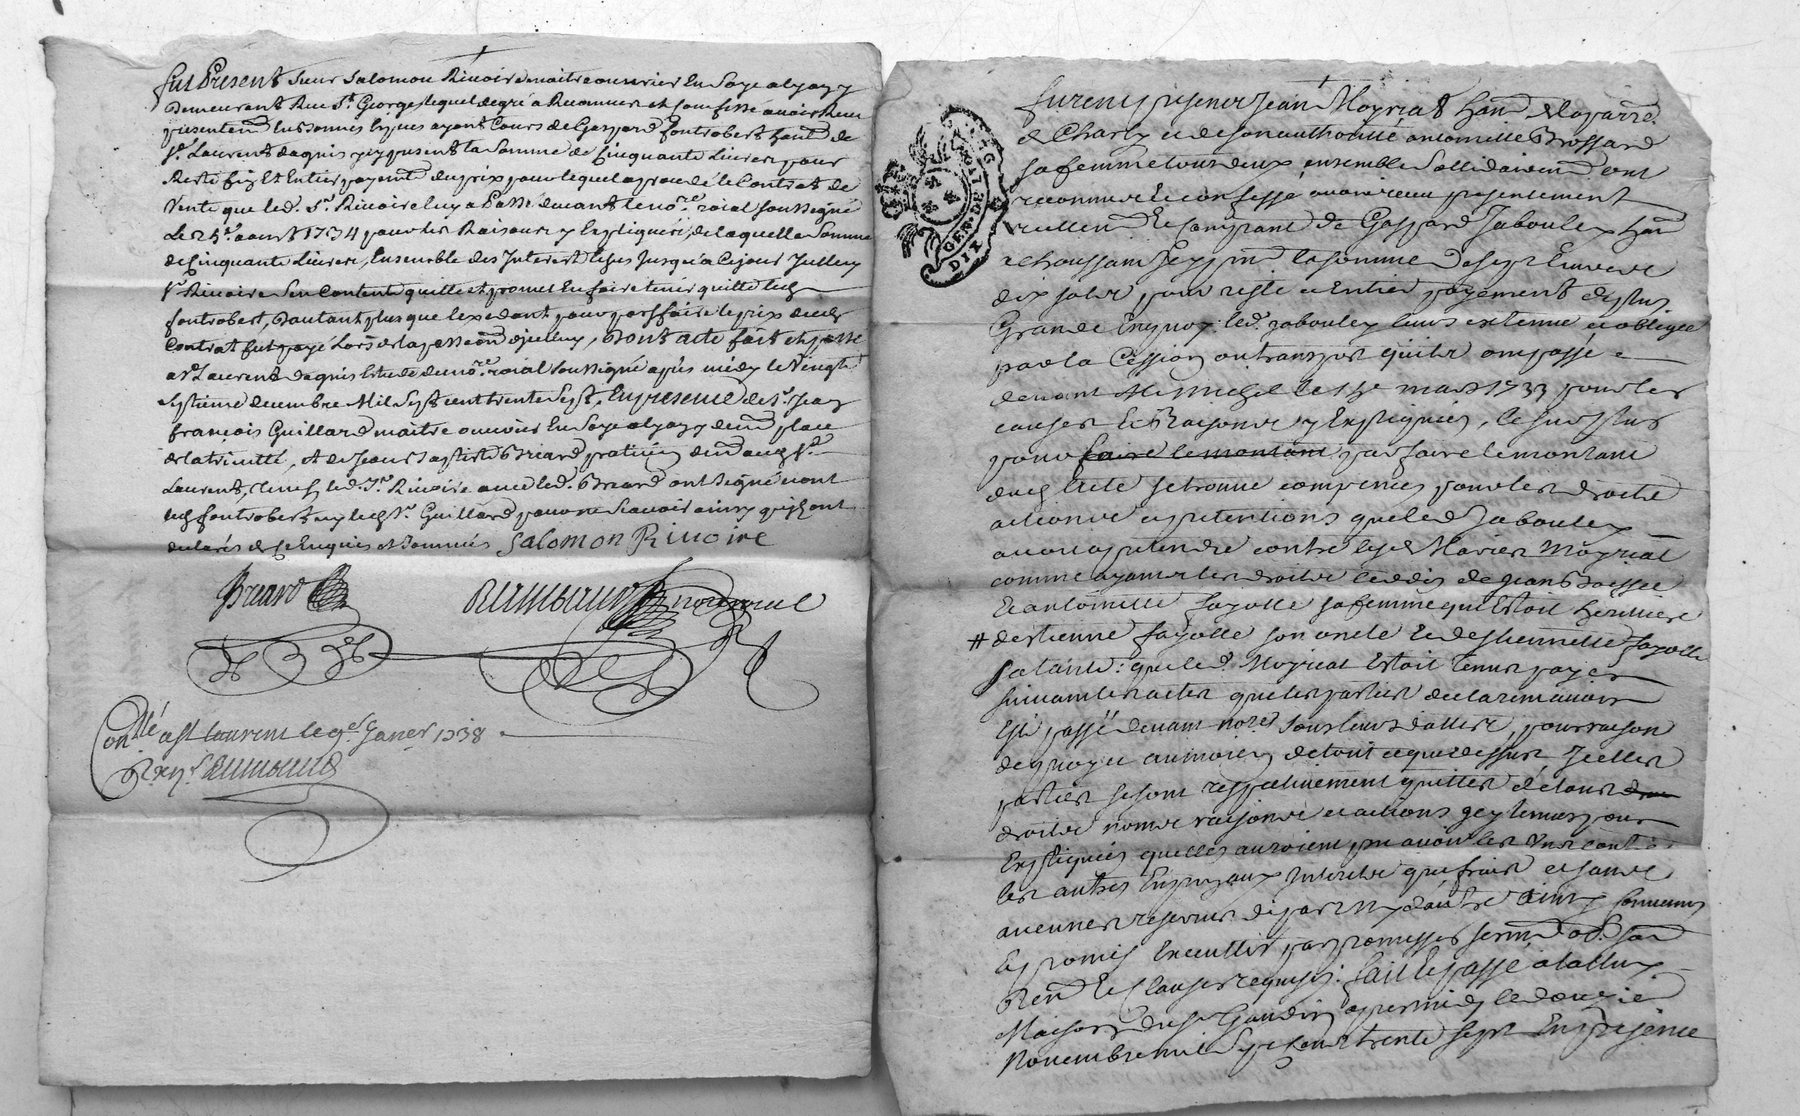 fut Present sieur Salomon Rivoire maitre ouvrier En Soye a lyon y
Demeurant Rue St. George lequel degré a Reconnu et Confessé avoir Receu
presentemt. En bonnes Espces ayant Cours de Gaspard fontrobert hant. de
St. Laurent dagnis icy present la Somme de Cinquante Livres pour
Reste fin Et Entier payemt. du prix pour lequel a procedé le Contrat de
Vente que led. Sr. Rivoire luy a Passé devant le nore. roial soussigné
Le 25e. aoust 1734 pour les Raisons y Expliquéés, de laquelle Somme
de Cinquante Livres, Ensemble des Interest Jusqu'a Ce jour Jcelluy
Sr. Rivoire S'en Contente quitte et promet En faire tenir quitte led.
fontrobert, Dautant plus que l'exedent pour parffaire le prix dud.
Contrat fut payé Lors de la passaon. d'icelluy, Dont acte fait et passé
a St. Laurent dagnis Etude du nore. roial soussigné après midy le Vingt
Septieme decembre Mil Sept cent trente Sept, En presence de Sr. Jean
francois Guillard maitre ouvrier En Soye a lyon y demt. place
de la trinitté, et de Jean Baptiste Breard praticien demt. aud. St.
Laurent, led. Sr. Rivoire avec led. Breard ont Signé non
led. fontrobert ny led. Sr. Guillard pour ne Scavoir ainsy qu'ils ont
declarés de ce Enquis et Sommés Salomon Rivoire
Breard
Conllé a St Laurent le 9e. Janer 1738
GEN. DE LION
DIX
furent presents Jean Moyriat hant. de la parre.
de Charly et de son authorité antoinette Brossard
sa femme tous deux ensemble Sollidairemt. ont
reconnu et confessé avoir receu presentement
reellemt. et comptant de Gaspard Jabouley hant.
a Choussan Jcy pnt. la somme de sept Livres
dix sols pour reste et Entier payement de plus
Grande Enquoy led. Jaboulley leurs es tenu et obligée
par la Cession ou transport qu'ils ont passé
devant Me mars 1733 pour les
causes Et Raisons y Expliquéés, le surplus
pour faire le montant parfaire le montant
dud. acte se trouve compencé pour les droits
actions et pretentions que led. Jabouley
avoit a pretendre contre lesd. Mariés Moyriat
comme ayant les droits ceddés de Jean
Et antoinette fayolle sa femme qui Estoit heritiere
# d'estienne fayolle son oncle Et d'estiennette fayolle
sa tante: que led. Moyriat Estoit tenu payer
suivant les actes que les parties declarent avoir
Esté passé devant nores. sous leurs dattes, pour raison
de quoy et au moien de tout ce que dessus Jcelles
parties se sont respectivement quittés de tous
droits noms raisons et actions
Expliquéés quelles auroient pu avoir les Uns contre
les autres En principaux Interets que frais et sans
aucunes reserves de part ny d'autre ainsy convenu
Et promis Executter par promesses sermt. obl. soun.
Renon. Et Clauses requises: fait Et passé a tallux
Maison du Sr. Gaudin apres midy le douzie.
Novembre mil Sept Cent trente sept En presence